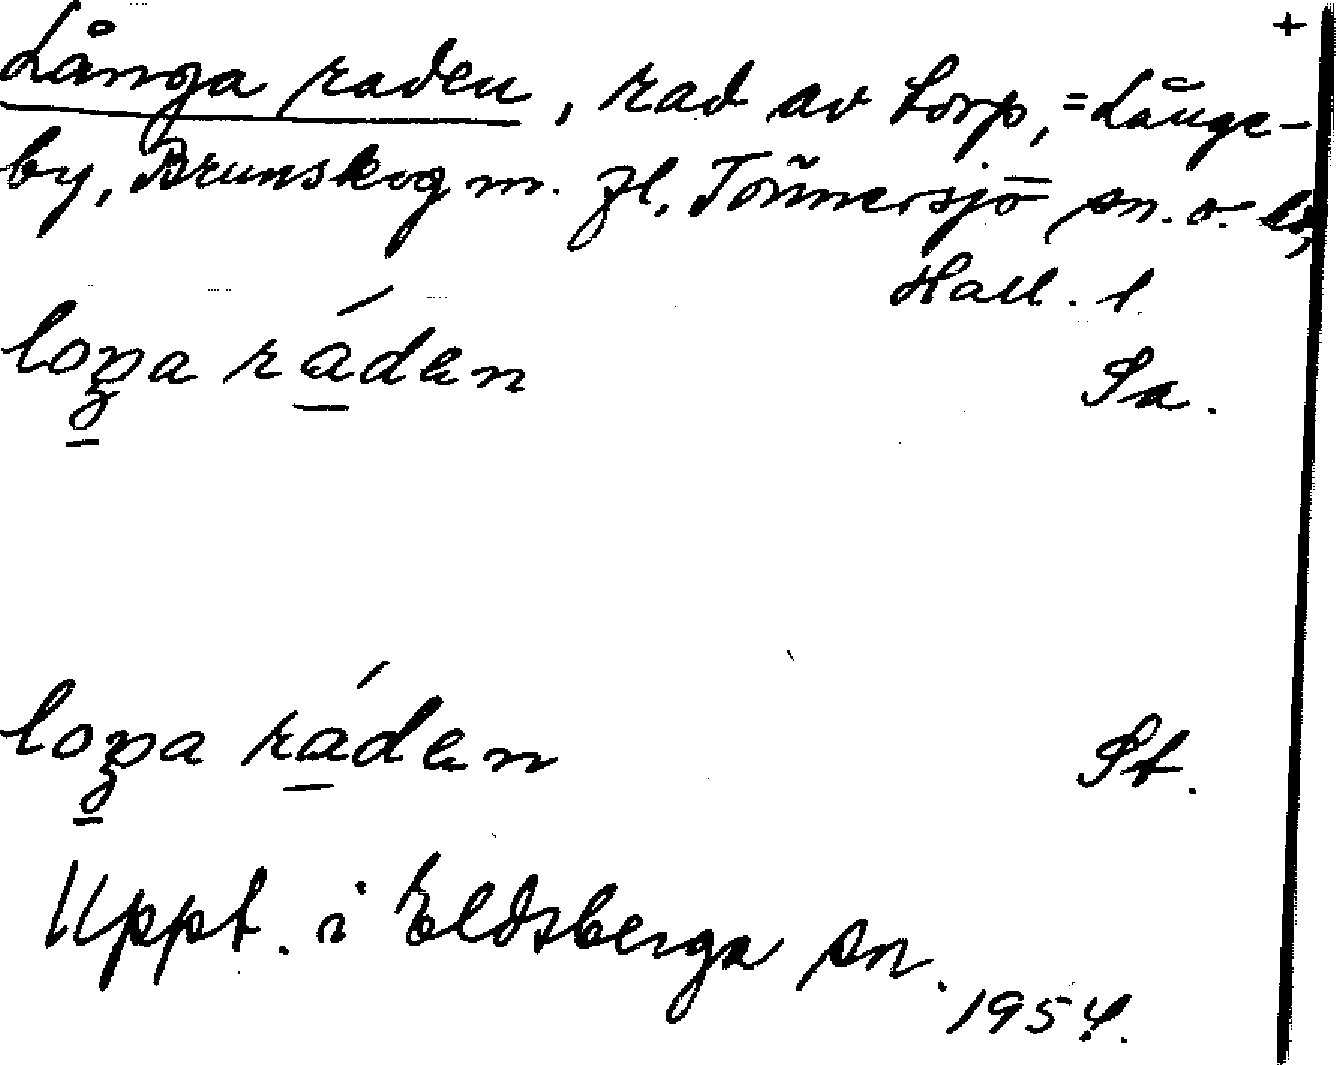 +
Långa raden, rad av torp, = Långe-
by, Brunskog m. fl. Tönnersjö sn. o. hd,
Hall. l.
loŋa ráden Sa.
loŋa ráden St.
Uppt. i Eldsberga sn.
1954.